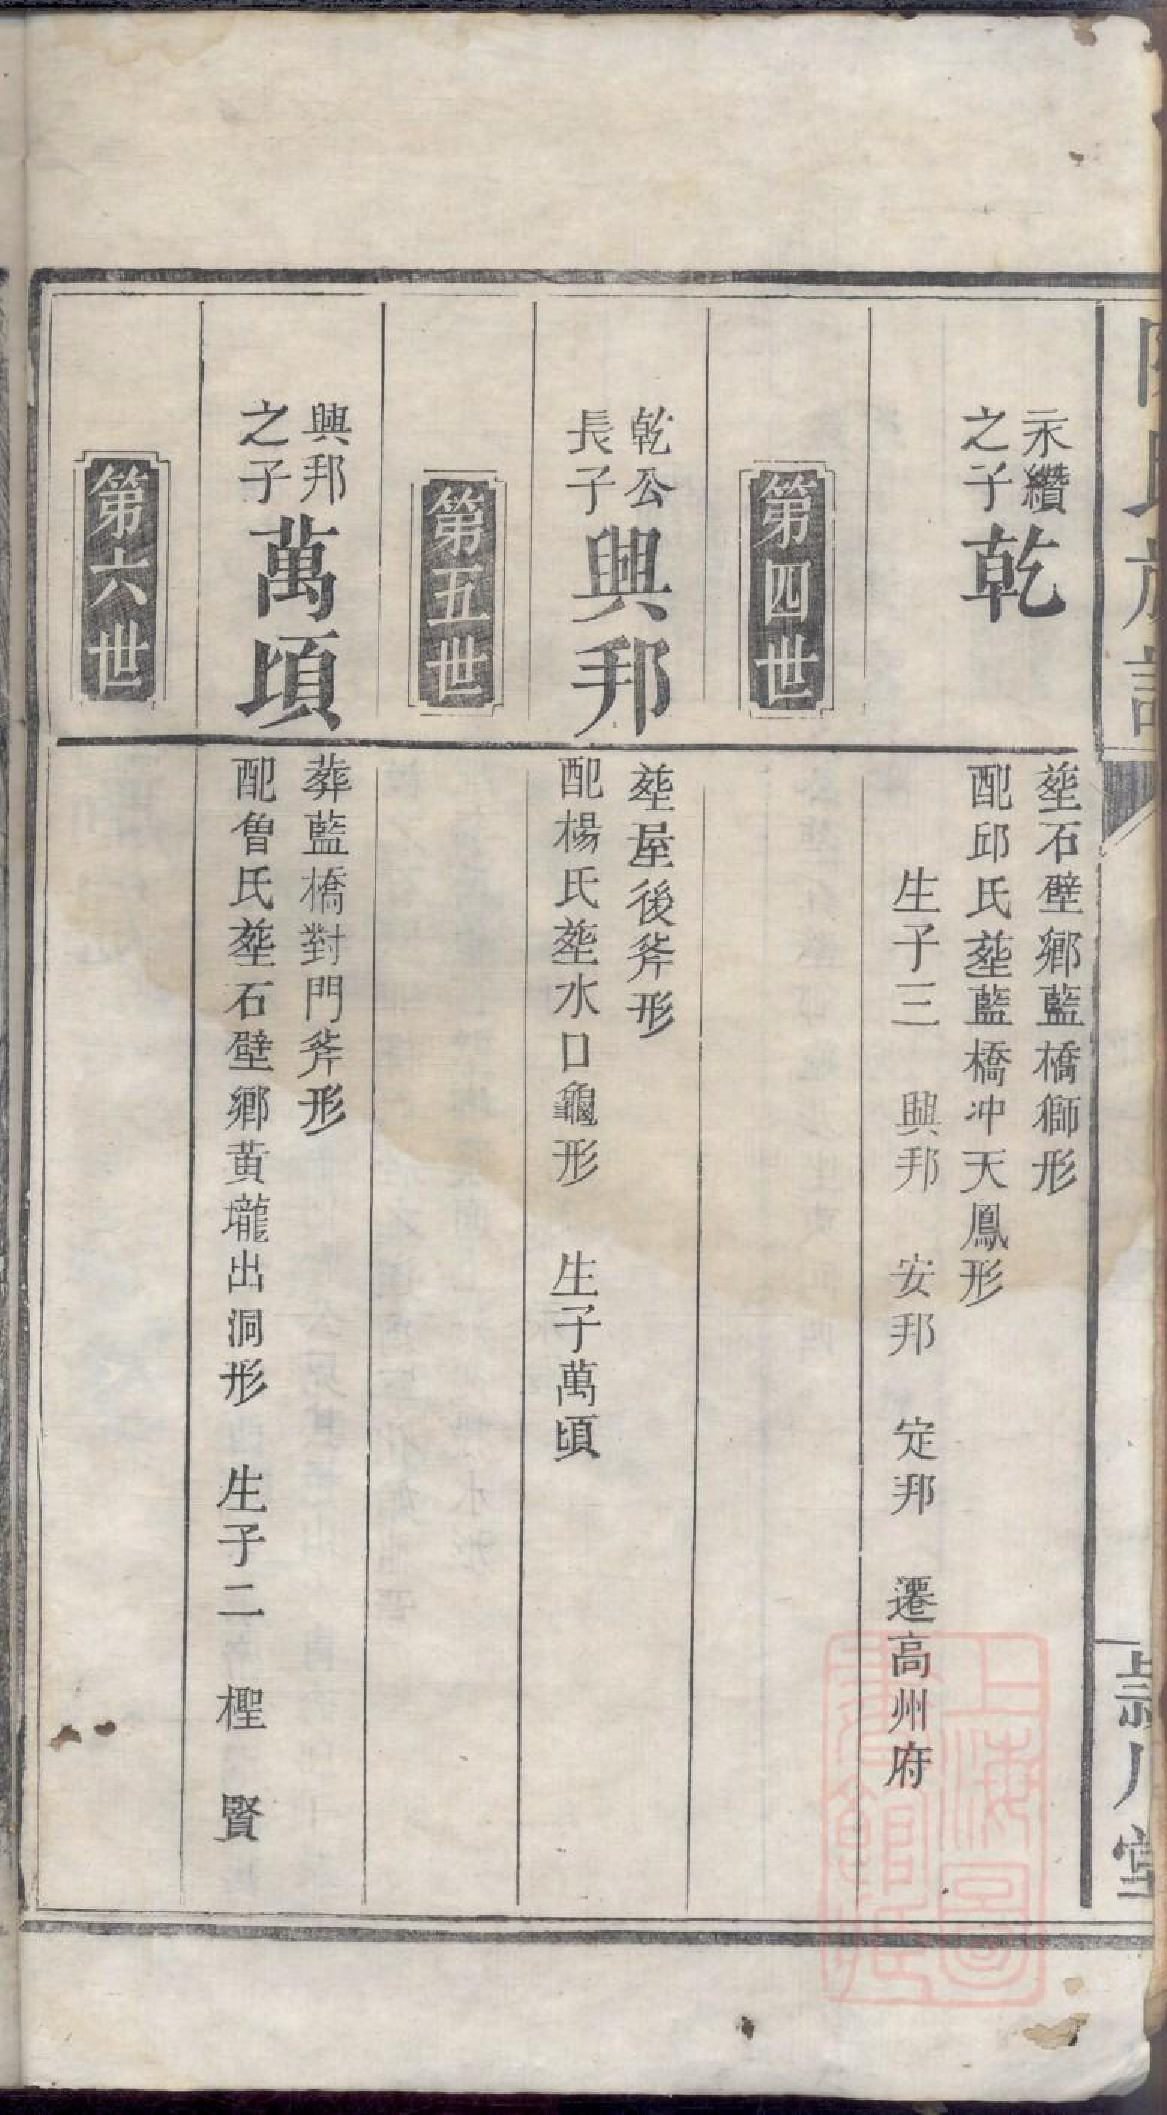 永纘
之子
乾
塟石壁鄉藍橋獅形
配邱氏塟藍橋冲天鳳形
生子三 興邦 安邦 定邦 遷高州府
第四世
乾公
長子
興邦
塟屋後斧形
配楊氏塟水口龜形 生子萬頃
第五世
興邦
之子
萬頃
葬藍橋對門斧形
配曾氏塟石壁鄉黃壠出洞形 生子二 檉 賢
第六世
上海圖
書館藏